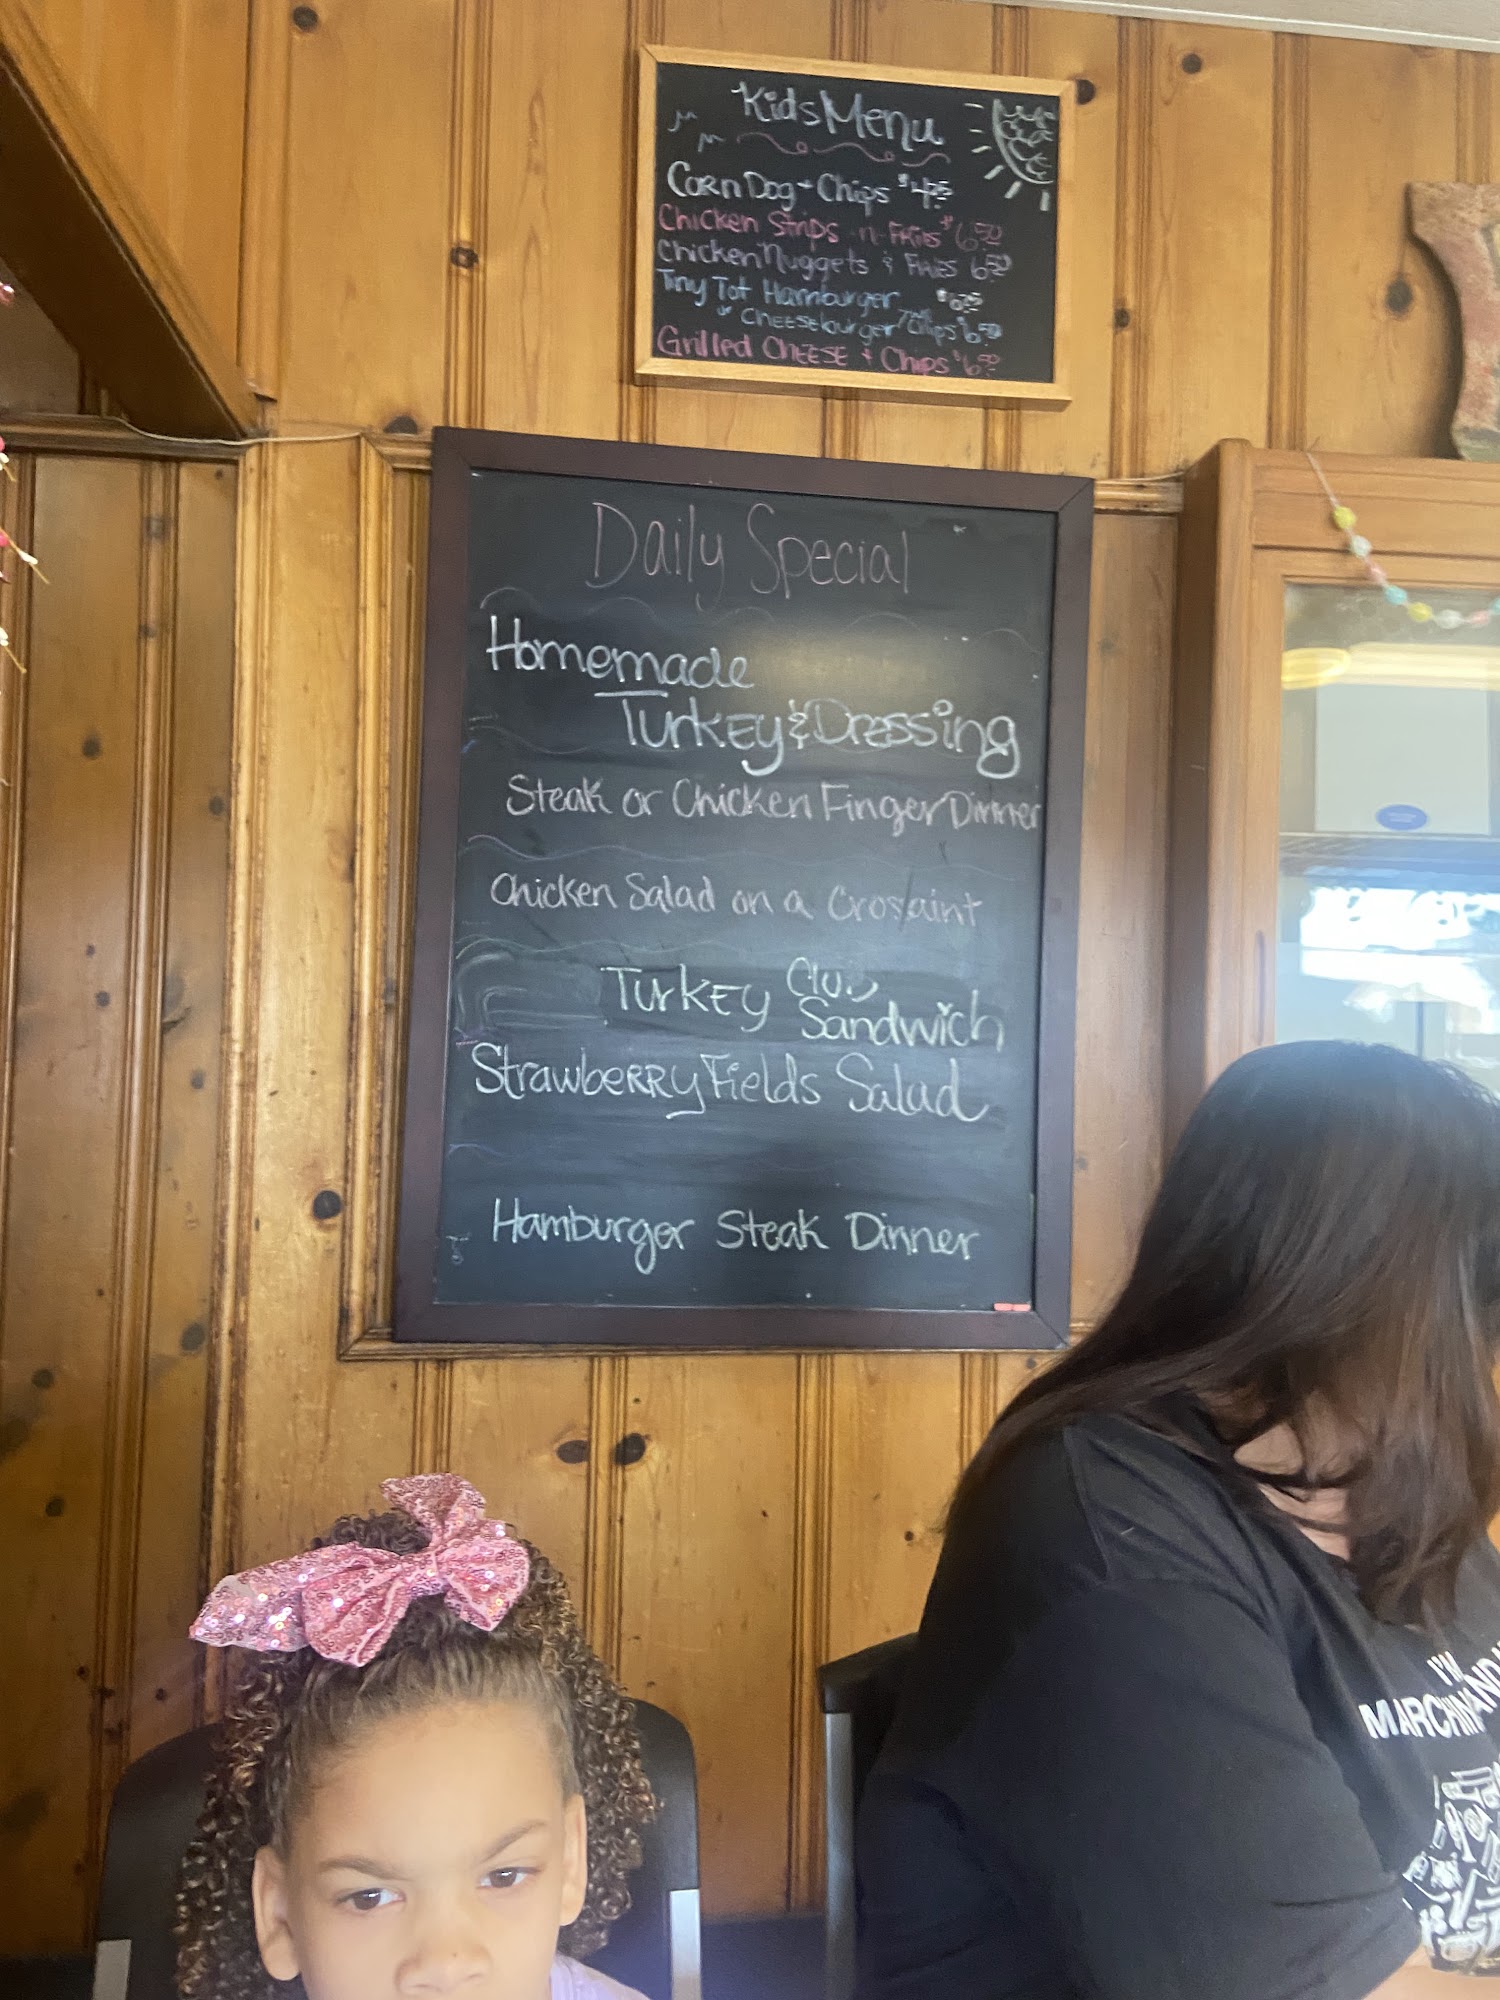 Kids Menu
Corn Dog + Chips $4.25
Chicken Strips -n- Fries $6.50
Chicken Nuggets & Fries 6.50
Tiny Tot Hamburger $6.25
or Cheeseburger Chips $6.50
Grilled CHEESE + Chips $6.50
Daily Special
Homemade
Turkey & Dressing
Steak or Chicken Finger Dinner
Chicken Salad on a Crossaint
Turkey Club
Sandwich
Strawberry Fields Salad
Hamburger Steak Dinner
I'M